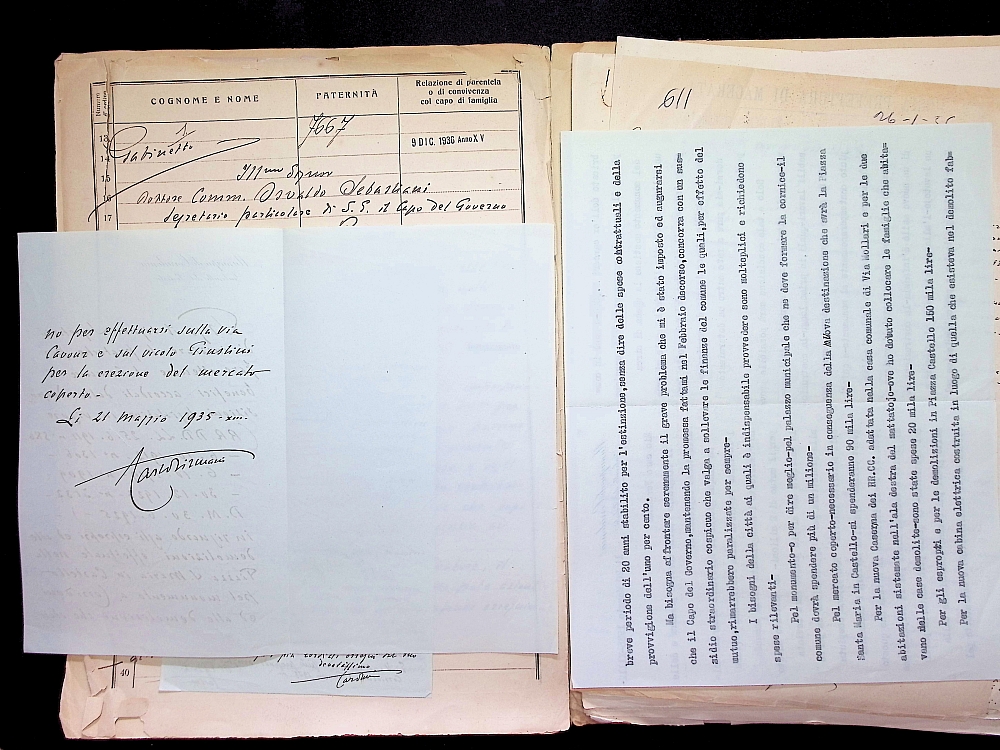 COGNOME E NOME
PATERNITÀ
Relazione di parentela
o di convivenza
col capo di famiglia
13
14
15
16
17
1
Gabinetto
7667
9 DIC. 1936 Anno XV
Ill.mo Signor
Dottore Comm. Osvaldo Sebastiani
Segretario particolare di S. E. il Capo del Governo
no per effettuarsi sulla via
Cavour e sul vicolo Giustini
per la erezione del mercato
coperto.-
Li 21 Maggio 1935-XIII-
40
devotissimo
611
26-1-35
breve periodo di 20 anni stabilito per l'estinzione,senza dire delle spese cobtrattuali e della
provvigione dell'uno per cento.
Ma bisogna affrontare serenmente il grave problema che mi è stato imposto ed augurarsi
che il Capo del Governo,mantenendo la promessa fattami nel Febbraio decorso,concorra con un sus=
sidio straordinario cospicuo che valga a sollevare le finanze del comune le quali,per effetto del
mutuo,rimarrebbero paralizzate per sempre-
I bisogni della città ai quali è indispensabile provvedere sono molteplici e richiedono
spese rilevanti-
Pel monumento-o per dire meglio-pel palazzo municipale che ne deve formare la cornice-il
comune dovrà spendere più di un milione-
Pel mercato coperto-necessario in conseguenza della nuova destinazione che avrà la Piazza
Santa Maria in Castello-si spenderanno 90 mila lire-
Per la nuova Caserma dei RR.CC. adattata nella casa comunale di Via Mollari e per le due
abitazioni sistemate nell'ala destra del mattatojo-ove ho dovuto collocare le famiglie che abita=
vano nelle case demolite-sono state spese 20 mila lire-
Per gli espropri e per le demolizioni in Piazza Castello 150 mila lire-
Per la nuova cabina elettrica costruita in luogo di quella che esisteva nel demolito fab=